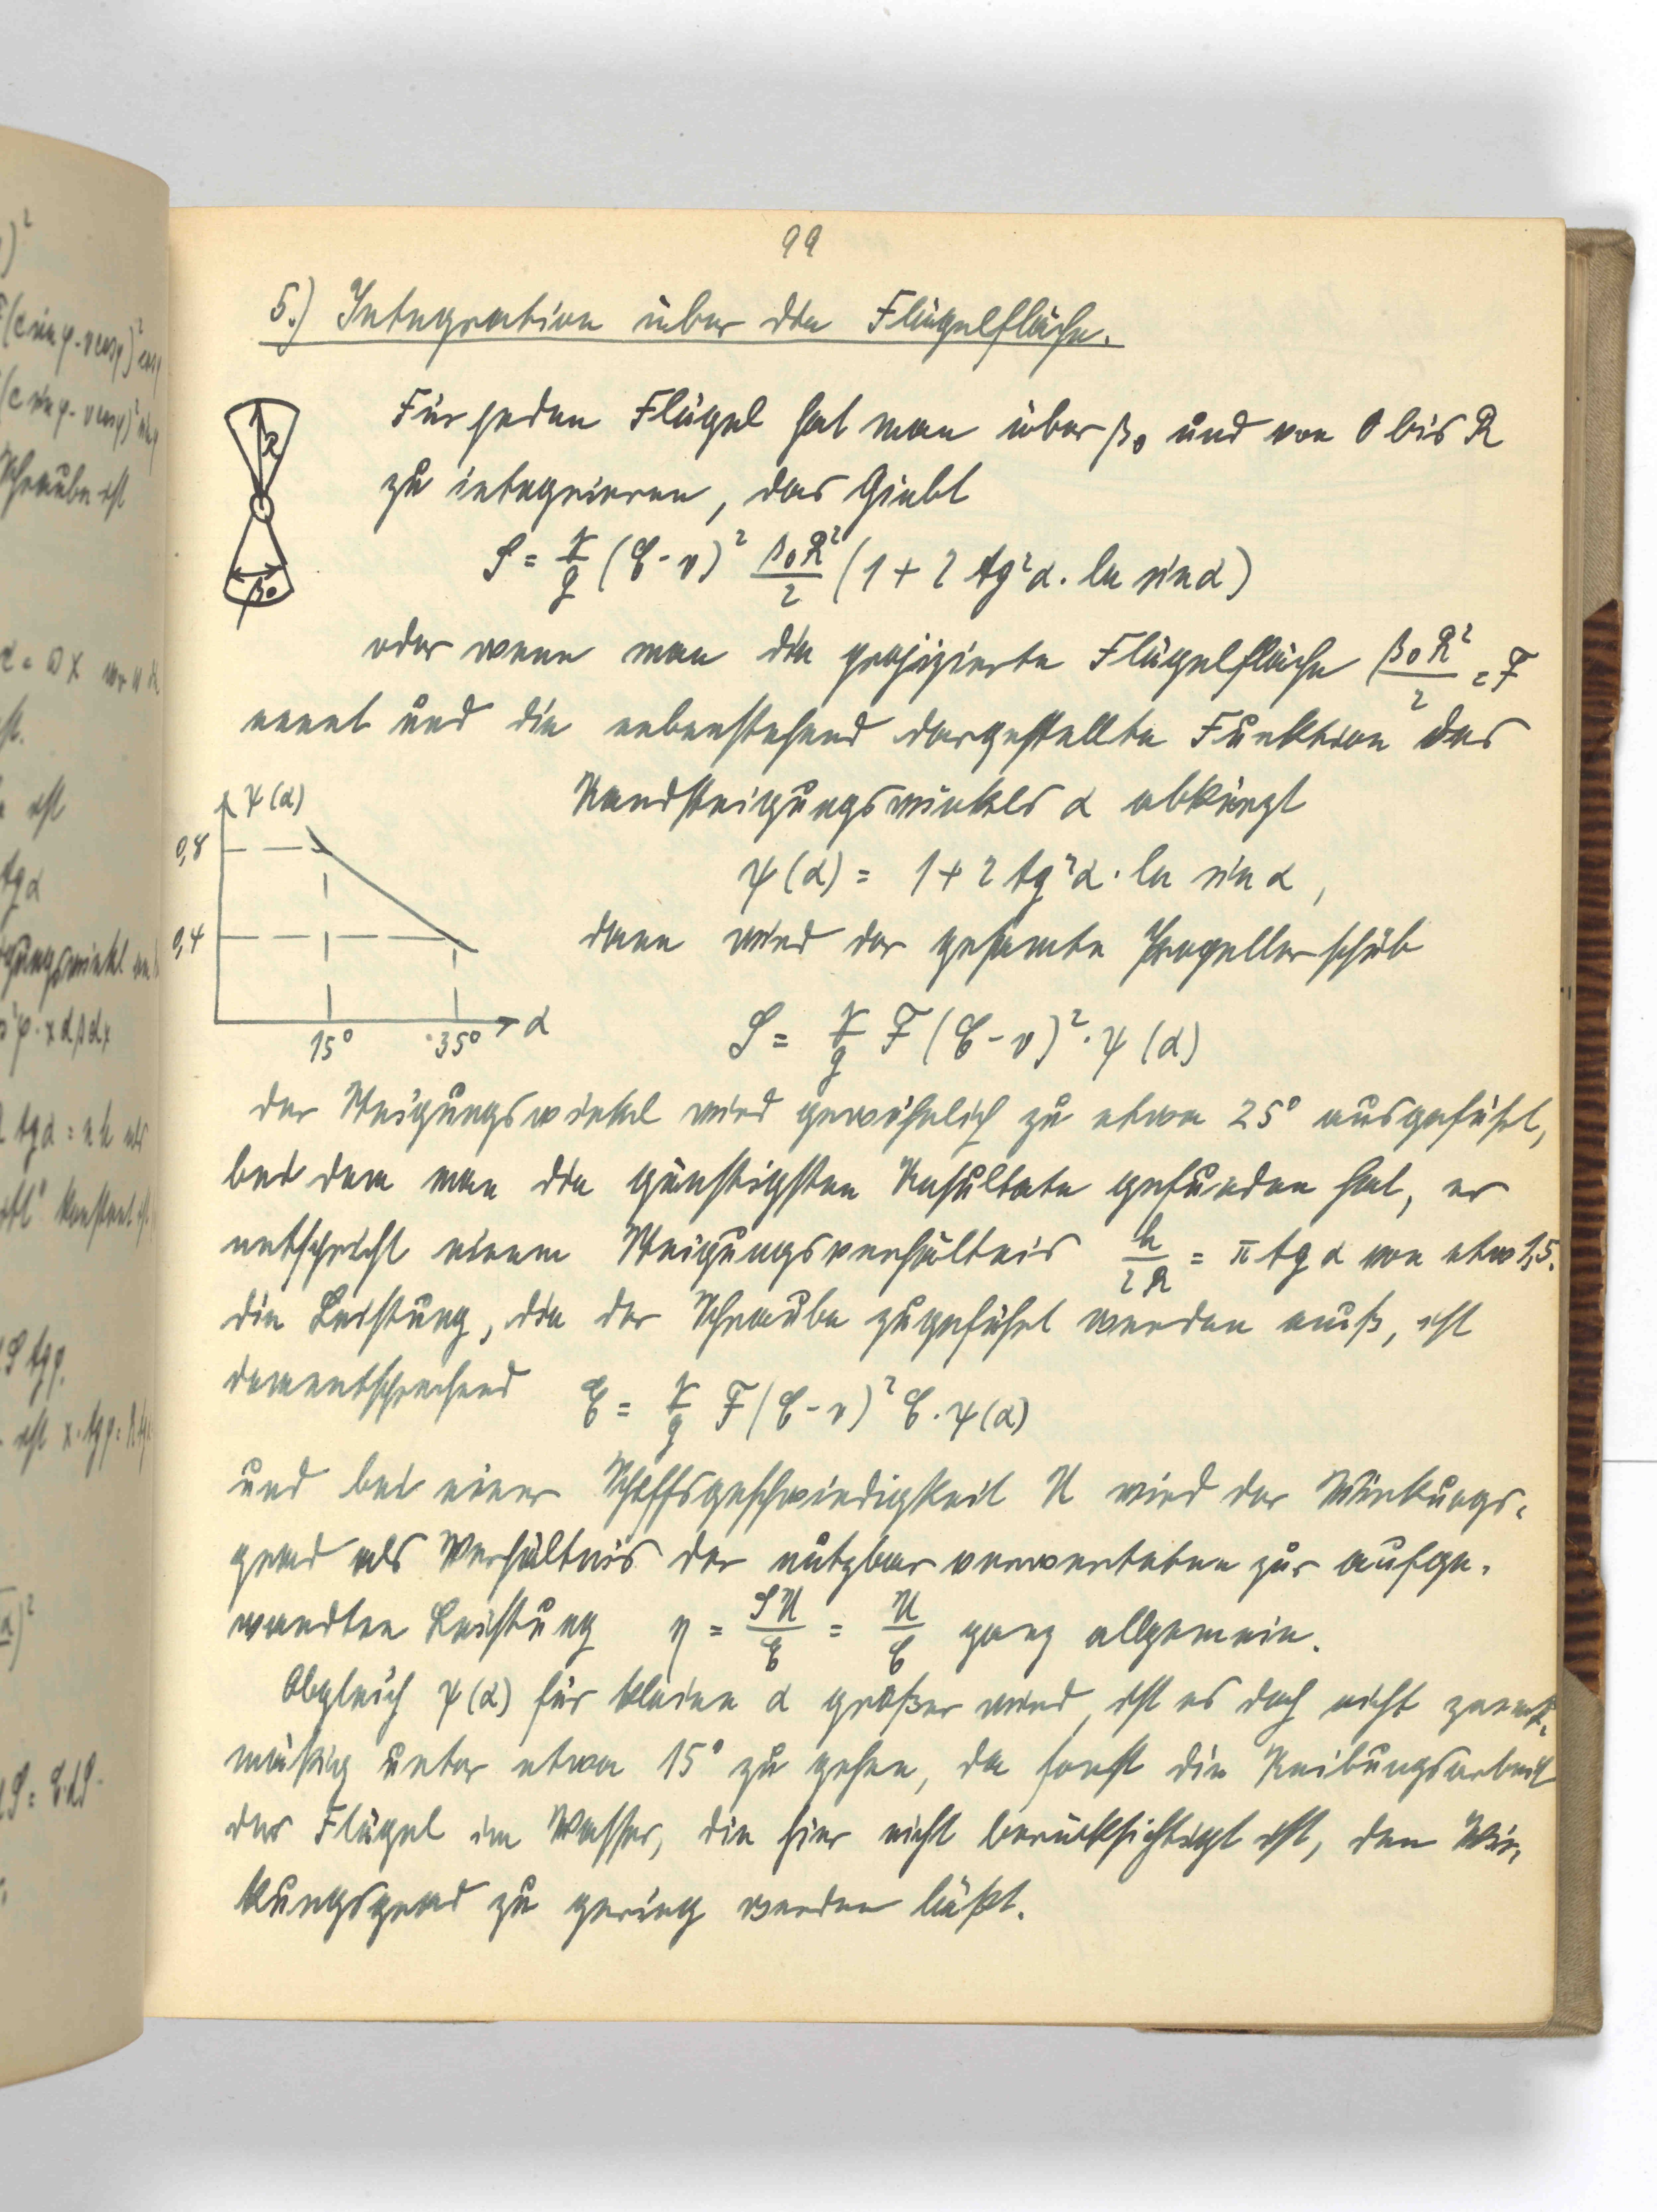 99
5.) Integration über die Flügelfläche.
Für jeden Flügel hat man über β₀ und von 0 bis R
zu integrieren, das Giebt
S = γ/g (C - v)² β₀R²/2 (1 + 2 tg²α · ln sin α)
oder wenn man die projizierte Flügelfläche β₀R²/2 = F
nennt und die nebenstehend dargestellte Funktion des
Randsteigungswinkels α abkürzt
ψ(α) = 1 + 2 tg²α · ln sin α,
dann wird der gesamte Propellerschub
S = γ/g F (C - v)² · ψ(α)
R
β₀
ψ(α)
0,8
0,4
15° 35° α
der Steigungswinkel wird gewöhnlich zu etwa 25° ausgeführt,
bei dem man die günstigsten Resultate gefunden hat, er
entspricht einem Steigungsverhältnis h/2R = π tg α von etwa 1,5.
die Leistung, die der Schraube zugeführt werden muß, ist
dementsprechend E = γ/g F (C - v)² C · ψ(α)
und bei einer Schiffsgeschwindigkeit U wird der Wirkungs-
grad als Verhältnis der nutzbar verwerteten zur aufge-
wandten Leistung η = SU/E = U/C ganz allgemein.
Obgleich ψ(α) für kleine α größer wird, ist es doch nicht zweck-
mäßig unter etwa 15° zu gehen, da sonst die Reibungsarbeit
der Flügel im Wasser, die hier nicht berücksichtigt ist, den Wir-
kungsgrad zu gering werden läßt.